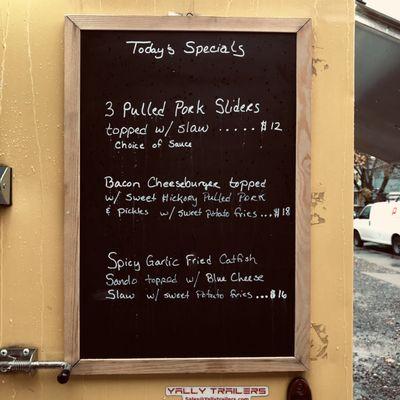 Today's Specials
3 Pulled Pork Sliders
topped w/ slaw ..... $12
Choice of Sauce
Bacon Cheeseburger topped
w/ Sweet Hickory Pulled Pork
& pickles w/ sweet potato fries...$18
Spicy Garlic Fried Catfish
Sando topped w/ Blue Cheese
Slaw w/ sweet potato fries...$16
YALLY TRAILERS
Sales@Yallytrailers.com